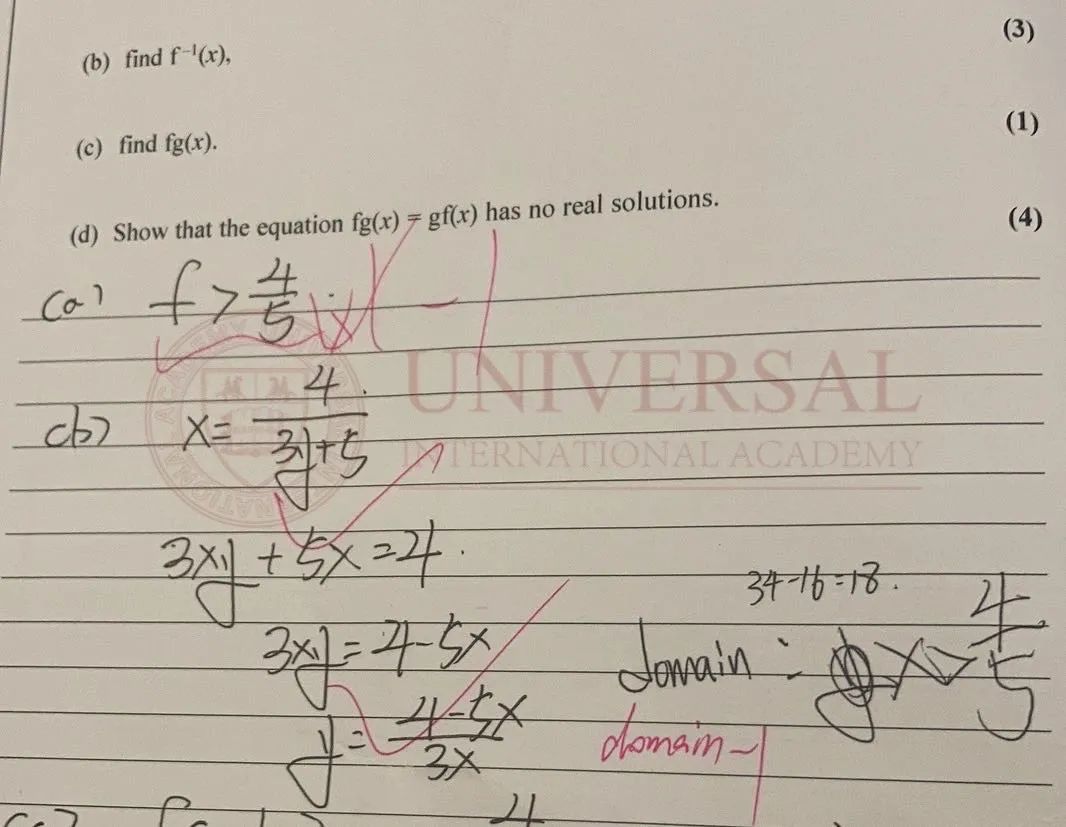 (3)
(b) find f⁻¹(x),
(1)
(c) find fg(x).
(d) Show that the equation fg(x) = gf(x) has no real solutions.
(4)
(a) f > 4/5
-1
UNIVERSAL
INTERNATIONAL ACADEMY
(b) x = 4/(3y+5)
3xy + 5x = 4.
34-16=18.
3xy = 4-5x
domain : x > 4/5
y = (4-5x)/(3x)
domain -1
4